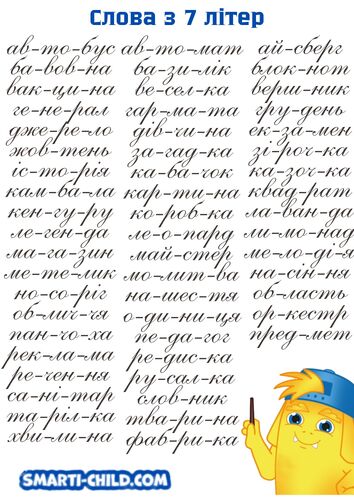 Слова з 7 літер
ав-то-бус
ба-вов-на
вак-ци-на
ге-не-рал
дже-ре-ло
жов-тень
іс-то-рія
кам-ба-ла
кен-гу-ру
ле-ген-да
ма-га-зин
ме-те-лик
но-со-ріг
об-лич-чя
пан-чо-ха
рек-ла-ма
ре-чен-ня
са-ні-тар
та-ріл-ка
хви-ли-на
ав-то-мат
ба-зи-лік
ве-сел-ка
гар-ма-та
дів-чи-на
за-гад-ка
ка-ба-чок
кар-ти-на
ко-роб-ка
ле-о-пард
май-стер
мо-лит-ва
на-шес-тя
о-ди-ни-ця
пе-да-гог
ре-дис-ка
ру-сал-ка
слов-ник
тва-ри-на
фаб-ри-ка
ай-сберг
блок-нот
верш-ник
гру-день
ек-за-мен
зі-роч-ка
ка-зоч-ка
квад-рат
ла-ван-да
ли-мо-над
ме-ло-ді-я
на-сін-ня
об-ласть
ор-кестр
пред-мет
SMARTI-CHILD.COM